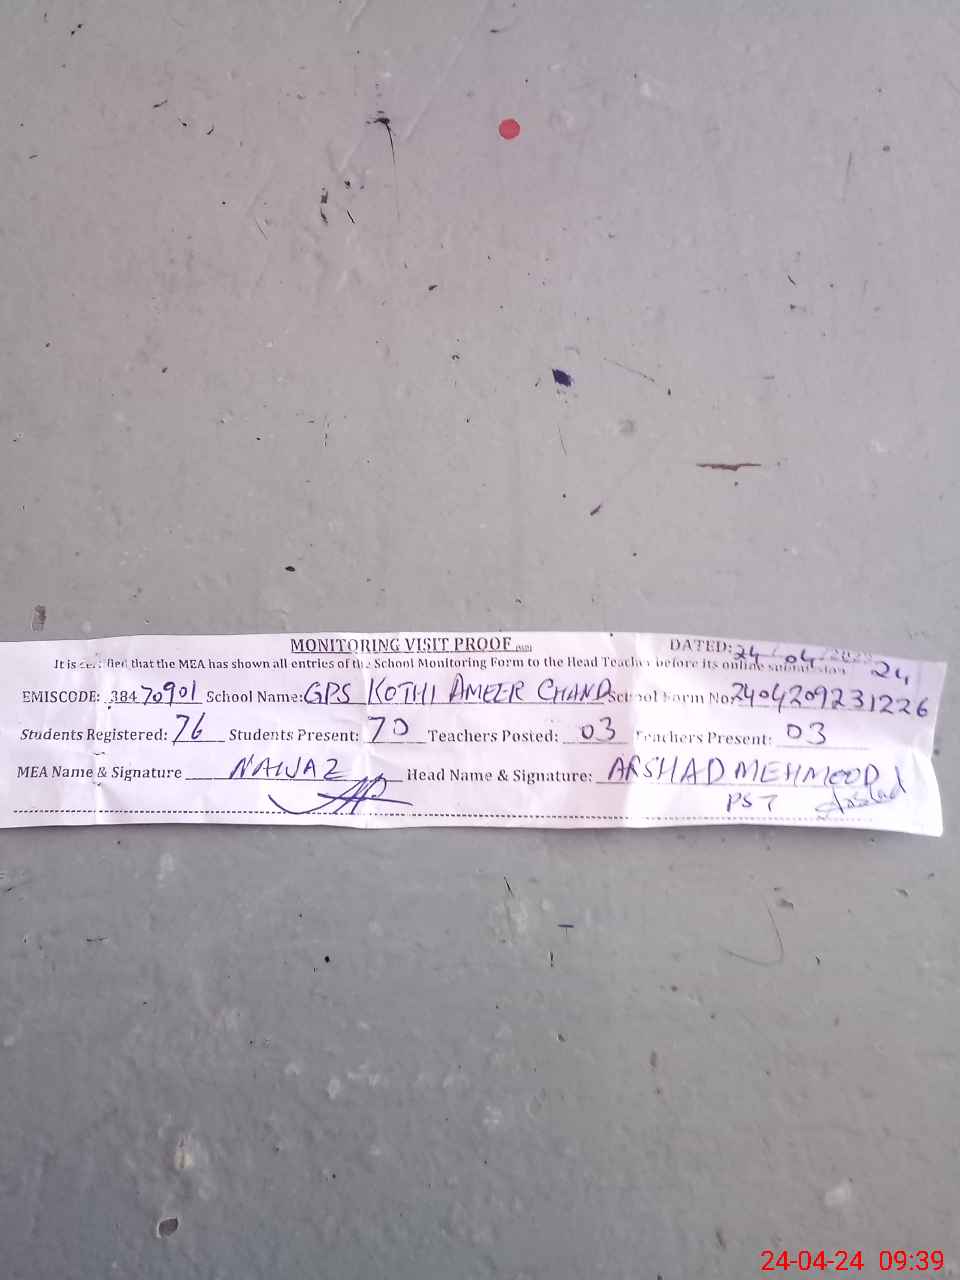 MONITORING VISIT PROOF
DATED: 24/04/2023 24
It is certified that the MEA has shown all entries of the School Monitoring Form to the Head Teacher before its online submission
EMISCODE: 38470901 School Name: GPS KOTHI AMEER CHAND School Form No: 2404209231226
Students Registered: 76 Students Present: 70 Teachers Posted: 03 Teachers Present: 03
MEA Name & Signature NAWAZ Head Name & Signature: ARSHAD MEHMOOD
PST Arshad
24-04-24 09:39